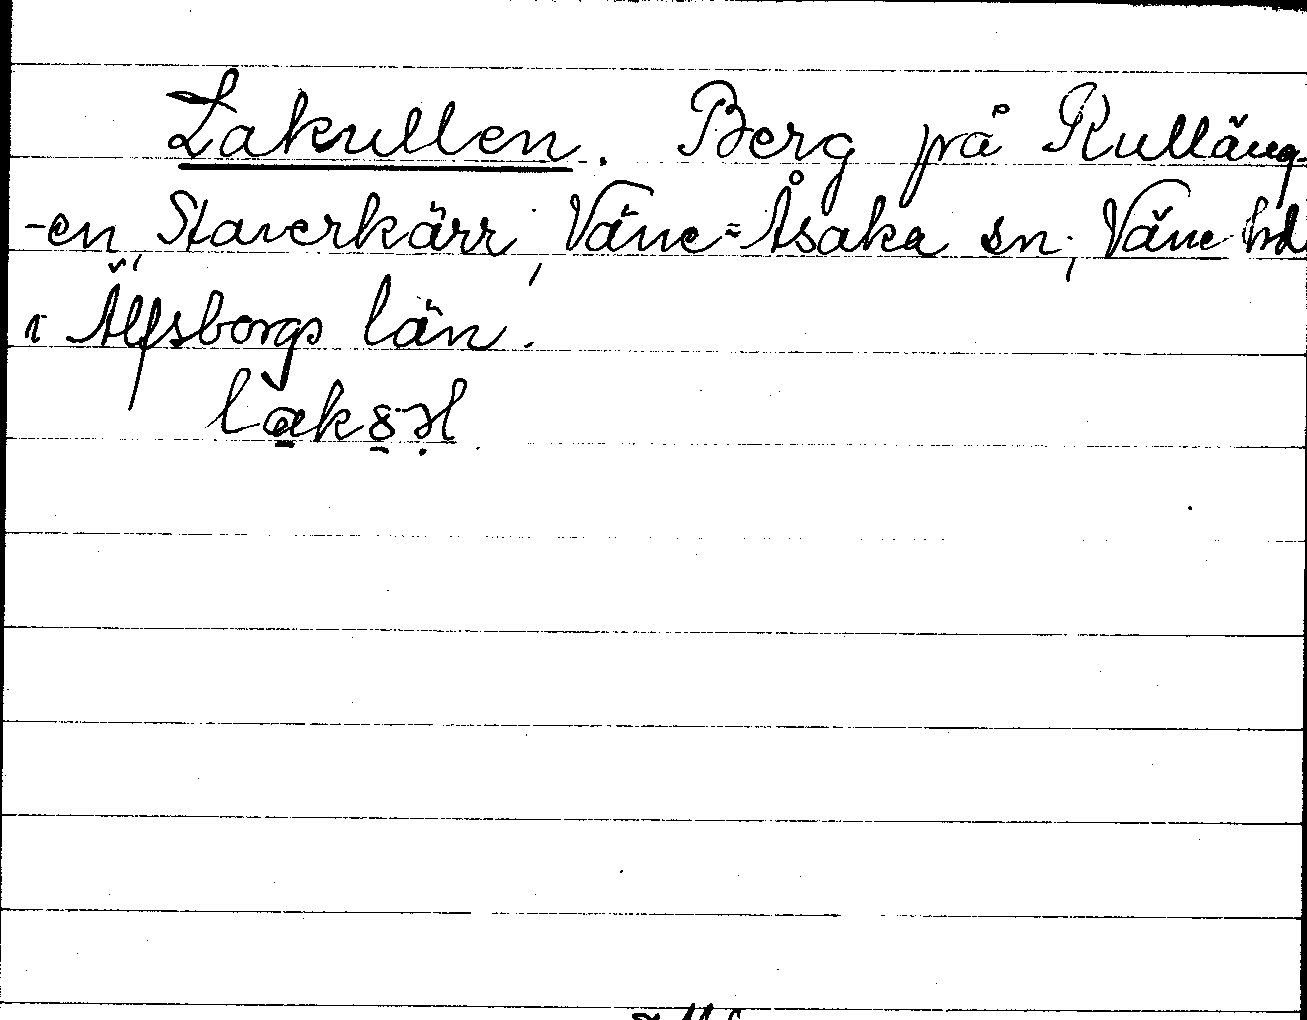 Lakullen. Berg på Rulläng-
-en, Staverkärr, Väne-Åsaka sn, Väne hd
i Älfsborgs län.